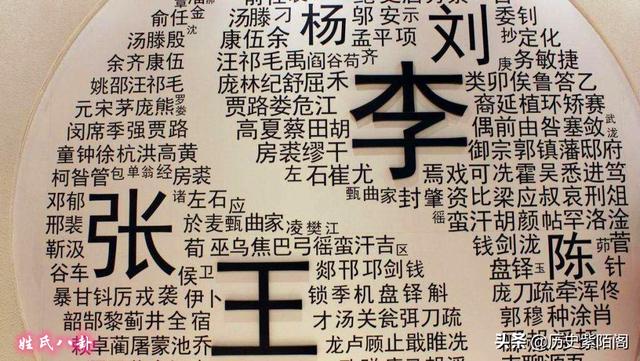 俞任金
汤滕 刁
杨
邬安示
刘
委钊
汤殷
沈
康伍余
孟平项
抄定化
余齐康伍
汪祁毛禹 阎谷苟齐
庚务敏捷
姚邵汪祁毛
庞林纪舒屈禾
李
类卯俟鲁答乙
元宋茅庞熊 罗娄
贾路娄危江
裔延植环矫赛
闵席季强贾路
高夏蔡田胡
偶前由喾塞敛 武泷
童钟徐杭洪高黄
房裘缪干
御宗郭镇藩邸府
柯昝管 包单翁经 房裘
左石崔尤
焉戏可冼霍吴悉进笃
邓郁
张
诸左石应
甄曲家
封肇资比梁应叔哀刑俎
邢裴
於麦甄曲家 凌樊江
徭蛮汗胡颜帖罕洛淦
靳汲
荀巫乌焦巴弓徭蛮汗吉 区
钱剑泷
陈
茆菅
谷车
侯 卫
王
郯邗邛剑钱
盘铎 玉
针
暴甘钭厉戎袭
伊卜
锁季机盘铎斛
庞刀疏牵浑佟
韶郜黎蓟井全宿
才汤关瓮弭刀疏
郭穆种涂肖
赖卓蔺屠蒙池乔
龙卢顾止戢睢冼
姓氏八卦
头条 @历史紫陌阁